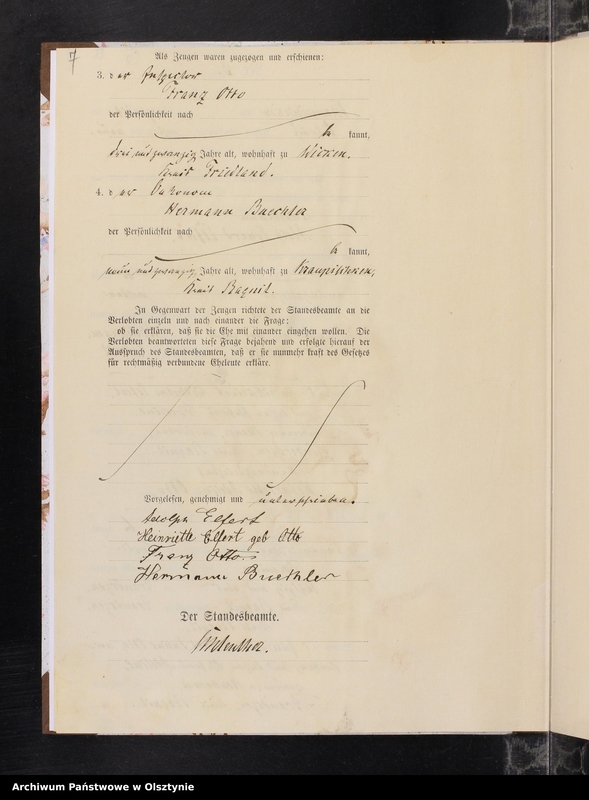 7
Als Zeugen waren zugezogen und erschienen:
3. der Inspector
Franz Otto
der Persönlichkeit nach
kannt,
drei und zwanzig Jahre alt, wohnhaft zu Wicken,
Kreis Friedland.
4. der Oekonom
Hermann Buechler
der Persönlichkeit nach
kannt,
neun und zwanzig Jahre alt, wohnhaft zu
Kreis Ragnit.
In Gegenwart der Zeugen richtete der Standesbeamte an die
Verlobten einzeln und nach einander die Frage:
ob sie erklären, daß sie die Ehe mit einander eingehen wollen. Die
Verlobten beantworteten diese Frage bejahend und erfolgte hierauf der
Ausspruch des Standesbeamten, daß er sie nunmehr kraft des Gesetzes
für rechtmäßig verbundene Eheleute erkläre.
Vorgelesen, genehmigt und unterschrieben.
Adolph Elfert
Heinriette Elfert geb Otto
Franz Otto
Hermann Buechler
Der Standesbeamte.
Archiwum Państwowe w Olsztynie